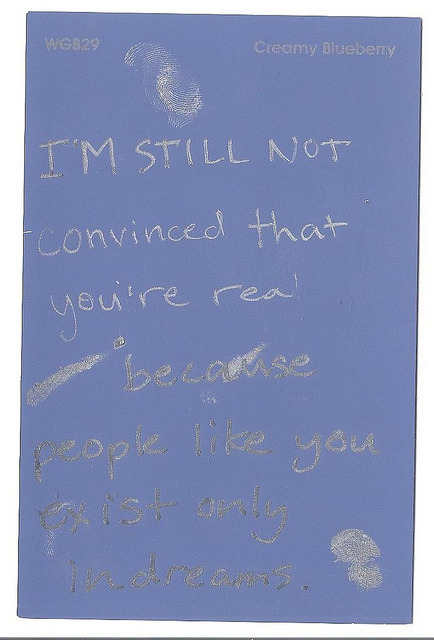 WG829 Creamy Blueberry
I'M STILL NOT
convinced that
you're real
because
people like you
exist only
in dreams.